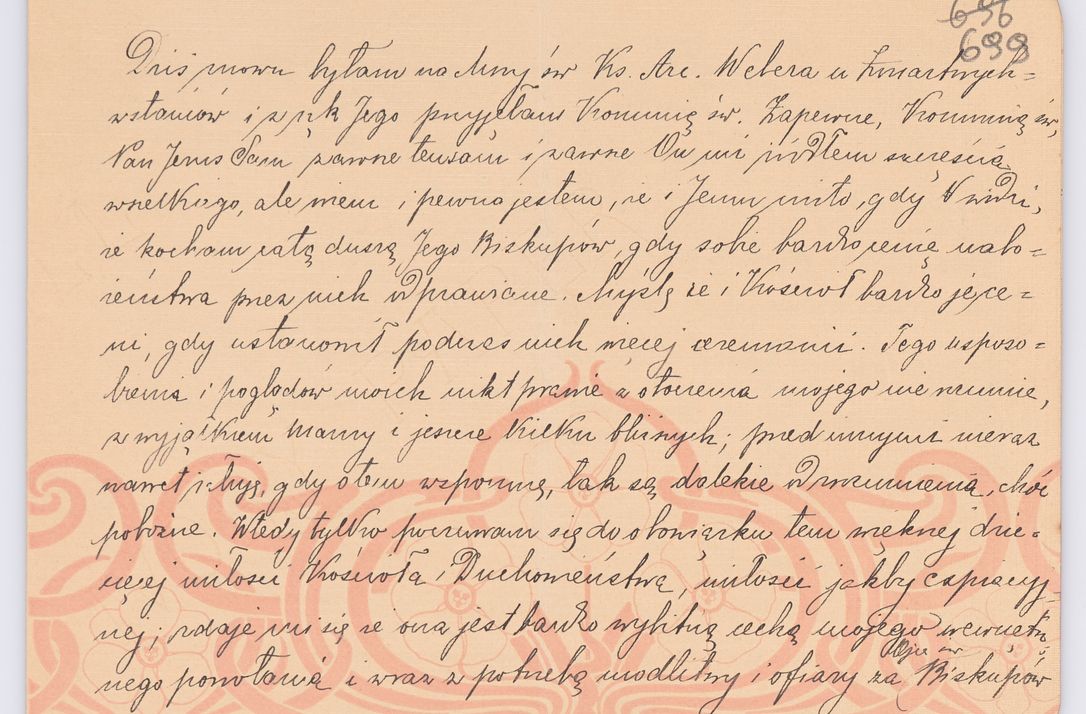 696
699
Dziś znowu byłam na Mszy św Ks. Arc. Webera u Zmartwych=
wstańców i z rąk Jego przyjęłam Kommunię św. Zapewne, Kommunią św,
Pan Jezus Sam zawsze tensam i zawsze On mi źródłem szczęścia
wszelkiego, ale wiem i pewna jestem, że i Jemu miło, gdy widzi,
że kocham całą duszą Jego Biskupów, gdy sobie bardzo cenię nabo=
żeństwa przez nich odprawiane. Myślę że i Kościół bardzo je ce=
ni, gdy ustanowił podczas nich więcej ceremonii. Tego usposo=
bienia i poglądów moich nikt prawie z otoczenia mojego nie rozumie,
z wyjątkiem Mamy i jeszcze kilku bliznych; przed innymi nieraz
nawet gdy o tem wspomnę, tak są dalekie od zrozumienia, choć
pobożne. Wtedy tylko poczuwam się do obowiązku tem większej dzie=
cięcej miłości Kościoła i Duchowieństwa, miłości jakby ekspiacyj
nej; zdaje mi się że ona jest bardzo wybitną cechą mojego wewnętrz
nego powołania i wraz z potrzebą modlitwy i ofiary za Ojca św Biskupów